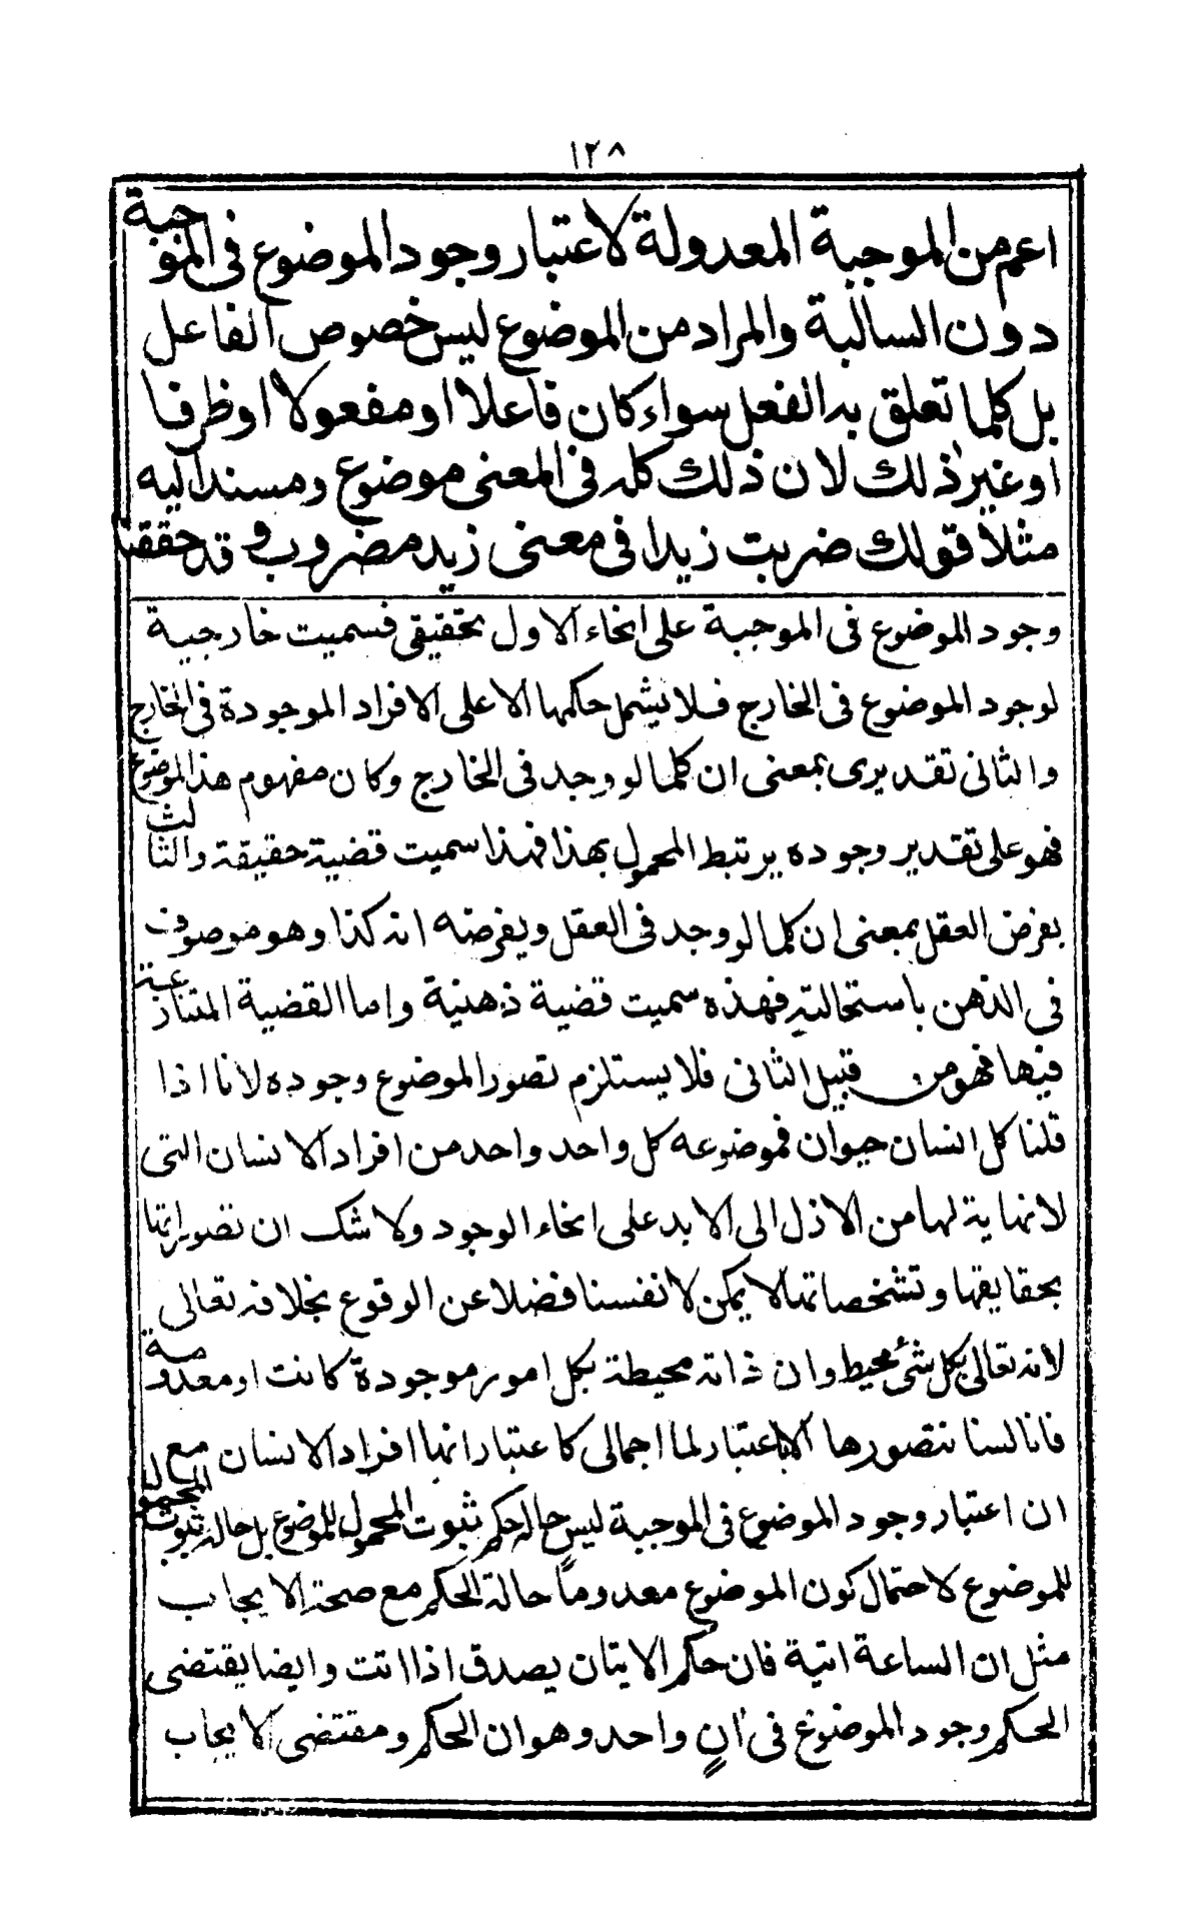 ١٢٨
اعم من الموجبة المعدولة لاعتبار وجود الموضوع فى الموجبة
دون السالبة والمراد من الموضوع ليس خصوص الفاعل
بل كلما تعلق به الفعل سواء كان فاعلا او مفعولا او ظرفا
او غير ذلك لان ذلك كله فى المعنى موضوع ومسند اليه
مثلا قولك ضربت زيدا فى معنى زيد مضروب و قد حققنا
وجود الموضوع فى الموجبة على انحاء الاول تحقيقى فسميت خارجية
لوجود الموضوع فى الخارج فلا يشمل حكمها الا على الافراد الموجودة فى الخارج
والثانى تقديرى بمعنى ان كلما لو وجد فى الخارج وكان مفهوم هذا الموضوع
فهو على تقدير وجوده يرتبط المحمول بهذا فهذا سميت قضية حقيقة والثالث
بفرض العقل بمعنى ان كلما لو وجد فى العقل ويفرضه انه كذا وهو موصوف
فى الذهن باستحالته فهذه سميت قضية ذهنية واما القضية المتنازعة
فيها فهو من قبيل الثانى فلا يستلزم تصور الموضوع وجوده لانا اذا
قلنا كل انسان حيوان فموضوعه كل واحد واحد من افراد الانسان التى
لا نهاية لها من الازل الى الابد على انحاء الوجود ولا شك ان تصوراتها
بحقايقها وتشخصاتها لا يمكن لانفسنا فضلا عن الوقوع بخلافه تعالى
لانه تعالى بكل شئ محيط وان ذاته محيطة بكل امور موجودة كانت او معدومة
فانا لسنا نتصورها الا باعتبار لما اجمالى كاعتبار انها افراد الانسان مع
ان اعتبار وجود الموضوع فى الموجبة ليس حالة حكم ثبوت المحمول للموضوع بل حالة ثبوت المحمول
للموضوع لاحتمال كون الموضوع معدوما حالة الحكم مع صحة الايجاب
مثل ان الساعة اتية فان حكم الاتيان يصدق اذا اتت وايضا يقتضى
الحكم وجود الموضوع فى انٍ واحد وهو ان الحكم ومقتضى الايجاب